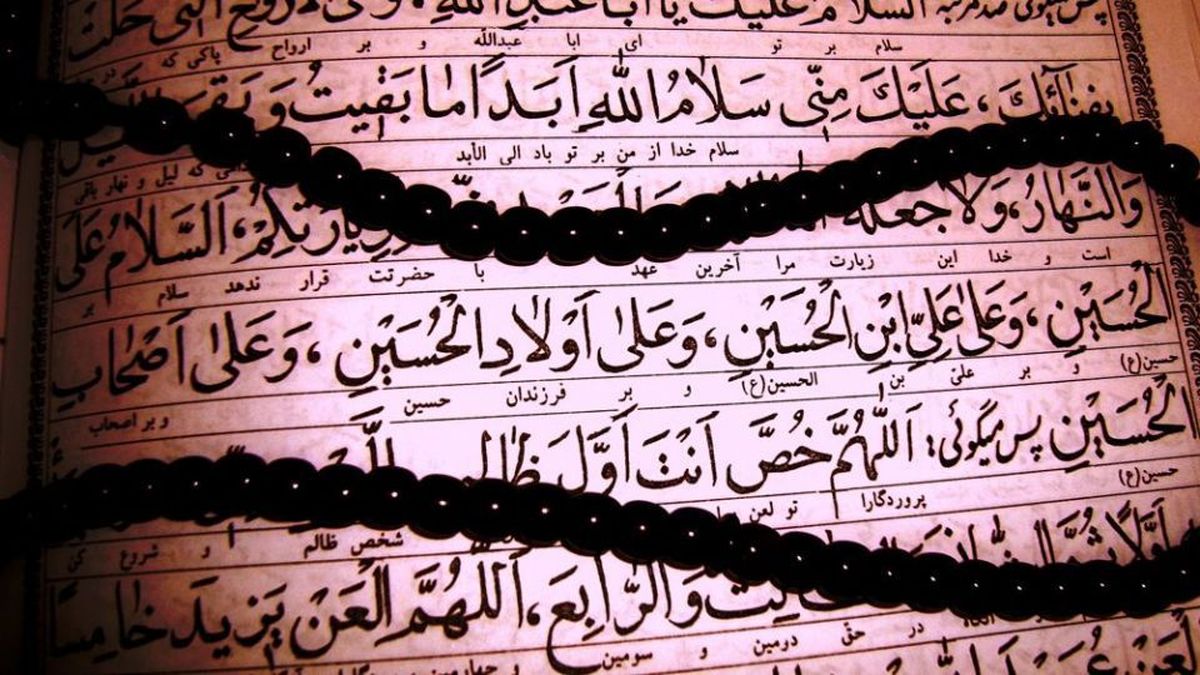 پس میگوئی صد مرتبه السلام عليك يا ابا عبد الله، وعلى الارواح التى حلت
سلام بر تو ای ابا عبدالله و بر ارواح پاکی که در
بفنائك، عَلَيْكَ مِنّى سَلامُ اللهِ اَبَداً ما بَقيتُ وَ بَقِىَ
سلام خدا از من بر تو باد الی الأبد که لیل و نهار باقی
وَالنَّهارُ، وَلا جعله زِيارَتِكُمْ، اَلسَّلامُ عَلَى
است و خدا این زیارت مرا آخرین عهد با حضرتت قرار ندهد سلام بر
الْحُسَيْنِ، وَعَلى عَلِىِّ ابْنِ الْحُسَيْنِ، وَعَلى اَوْلادِ الْحُسَيْنِ، وَعَلى اَصْحابِ
حسین(ع) و بر علیّ بن الحسین(ع) و بر فرزندان حسین و بر اصحاب
الْحُسَيْنِ پس میگوئی: اَللّهُمَّ خُصَّ اَنْتَ اَوَّلَ ظالِمٍ
حسین(ع) پروردگارا تو لعن شخص ظالم و شروع کن
اَوَّلاً ثُمَّ
در حقّ دومین و سومین و چهارمین
وَالرّابِعَ، اَللّهُمَّ الْعَنْ يَزيدَ خامِساً